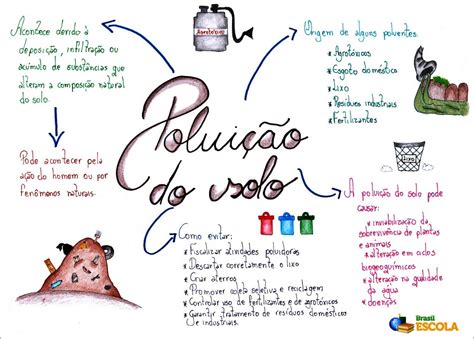 Acontece devido à
deposição, infiltração ou
acúmulo de substâncias que
alteram a composição natural
do solo.
Pode acontecer pela
ação do homem ou por
fenômenos naturais.
Agrotóxico
Poluição
do solo
Origem de alguns poluentes:
* Agrotóxicos
* Esgoto doméstico
* Lixo
* Resíduos industriais
* Fertilizantes
Lixo
A poluição do solo pode
causar:
* inviabilização da
sobrevivência de plantas
e animais
* alteração em ciclos
biogeoquímicos
* alteração na qualidade
da água
* doenças
Como evitar:
* Fiscalizar atividades poluidoras
* Descartar corretamente o lixo
* Criar aterros
* Promover coleta seletiva e reciclagem
* Controlar uso de fertilizantes e de agrotóxicos
* Garantir tratamento de resíduos domésticos
e industriais.
Brasil
ESCOLA